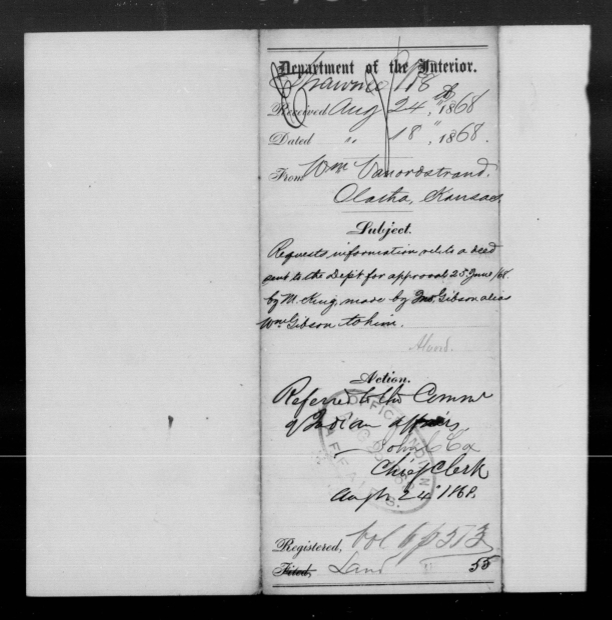 Department of the Interior.
Shawnee
Received Aug 24, 1868
Dated " 18, 1868.
From Wm Vanordstrand,
Olatha, Kansas
Subject.
Requests information relite a deed
sent to the Dept for approval 25 June /68.
by M. King, made by Jno. Gibson alias
Wm Gibson to him.
Action.
Referred to the Commr
of Indian affairs
John C Cox
Chief Clerk
Augt 24 1868.
OFFICE INDIAN AFFAIRS.
Registered, Vol 6 p 273
Filed, Land 55